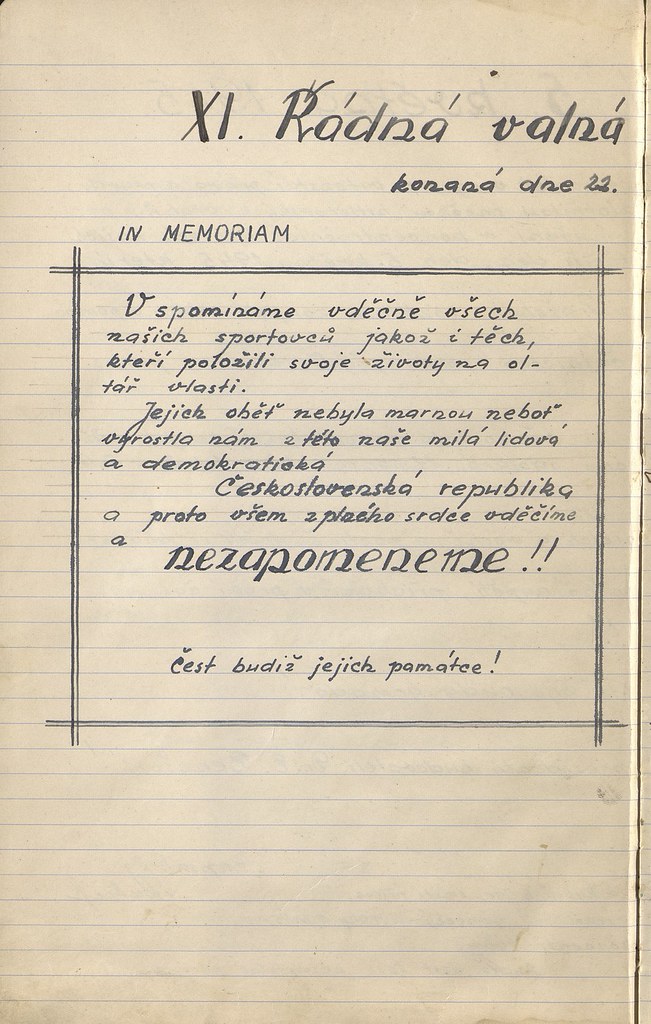 XI. Řádná valná
konaná dne 22.
IN MEMORIAM
Vspomínáme vděčně všech
našich sportovců jakož i těch,
kteří položili svoje životy na ol-
tář vlasti.
Jejich oběť nebyla marnou neboť
vyrostla nám z této naše milá lidová
a demokratická
Československá republika
a proto všem z plného srdce vděčíme
a
nezapomeneme!!
Čest budiž jejich památce!